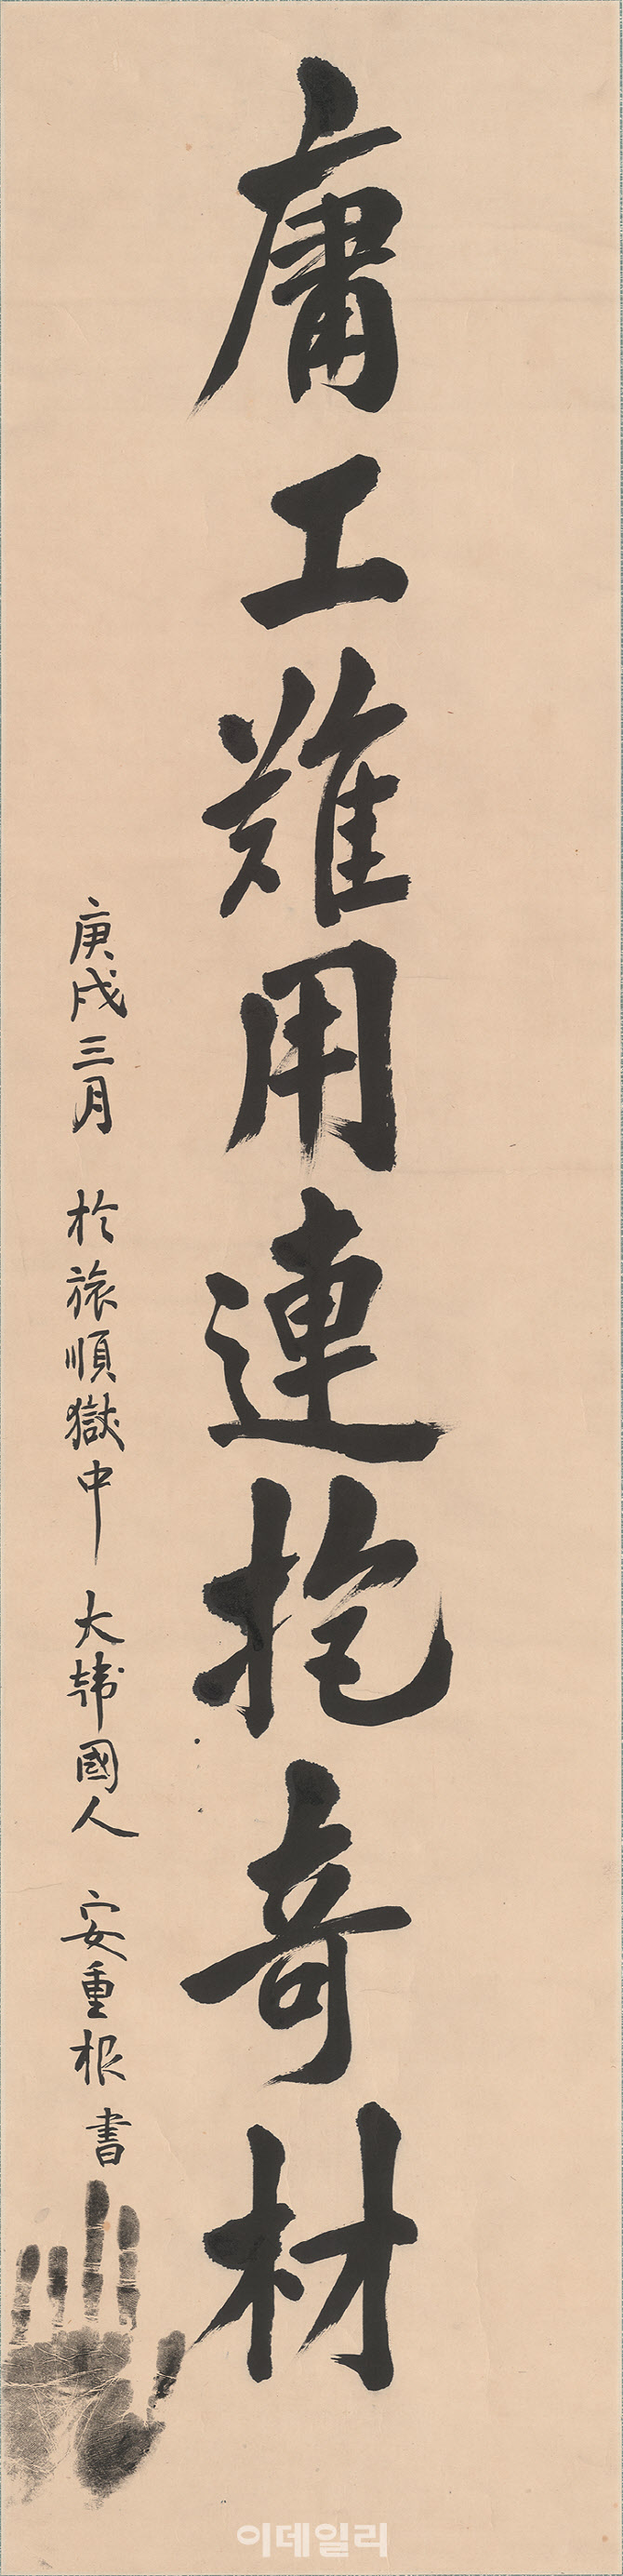 庸工難用連抱奇材
庚戌三月 於旅順獄中 大韓國人 安重根 書
이데일리